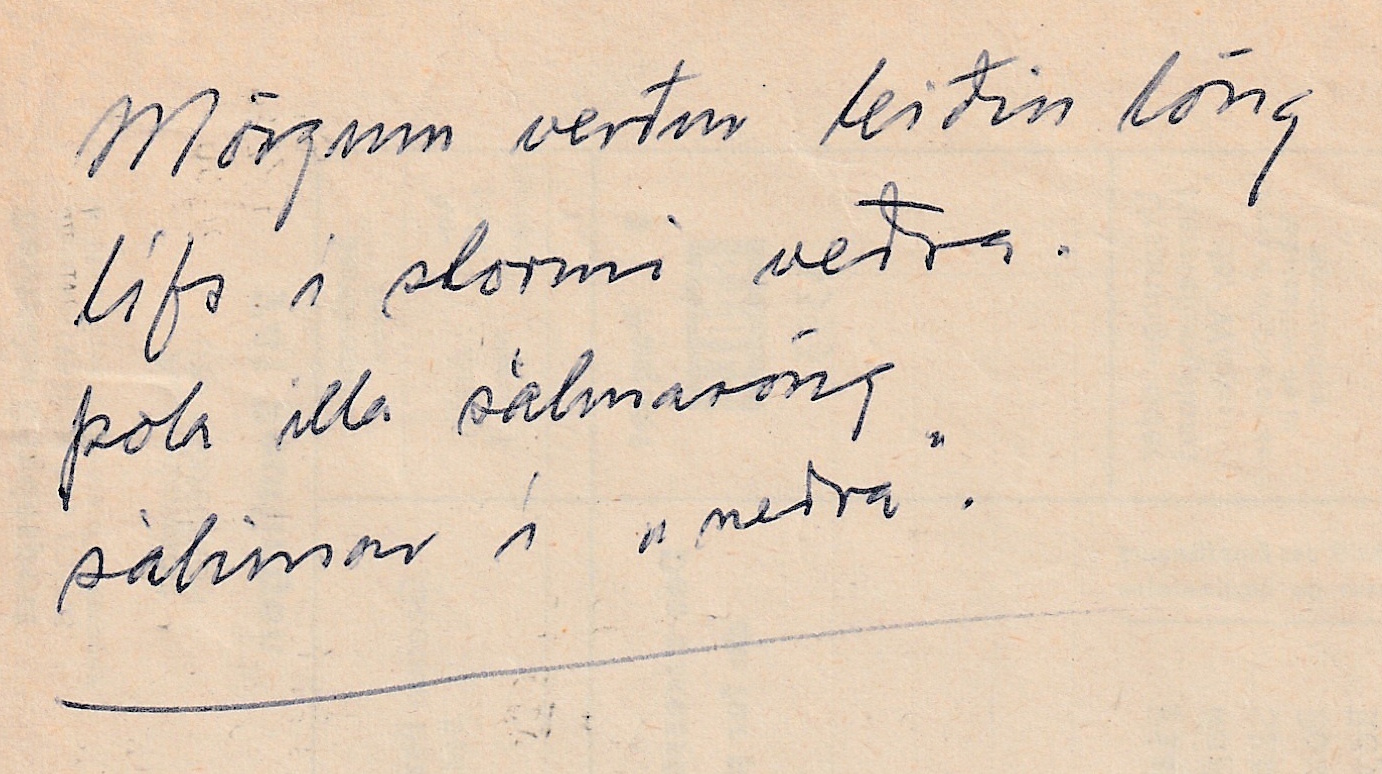 Mörgum verður leiðin löng
lífs í stormi veðra.
þola illa sálmasöng
sálirnar í „neðra“.